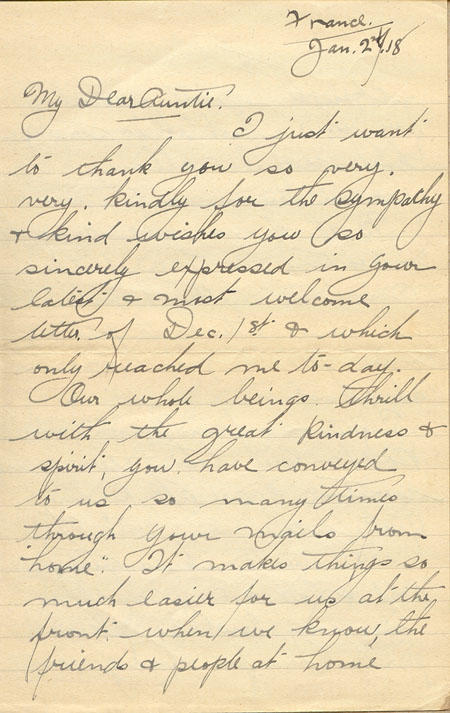 France.
Jan. 2nd/18
My Dear Auntie.
I just want
to thank you so very,
very, kindly for the sympathy
& kind wishes you so
sincerely expressed in your
latest & most welcome
letter, of Dec. 1st & which
only reached me to-day.
Our whole beings thrill
with the great kindness &
spirit, you have conveyed
to us so many times
through your mails from
"home". It makes things so
much easier for us at the
front, when we know, the
friends & people at home